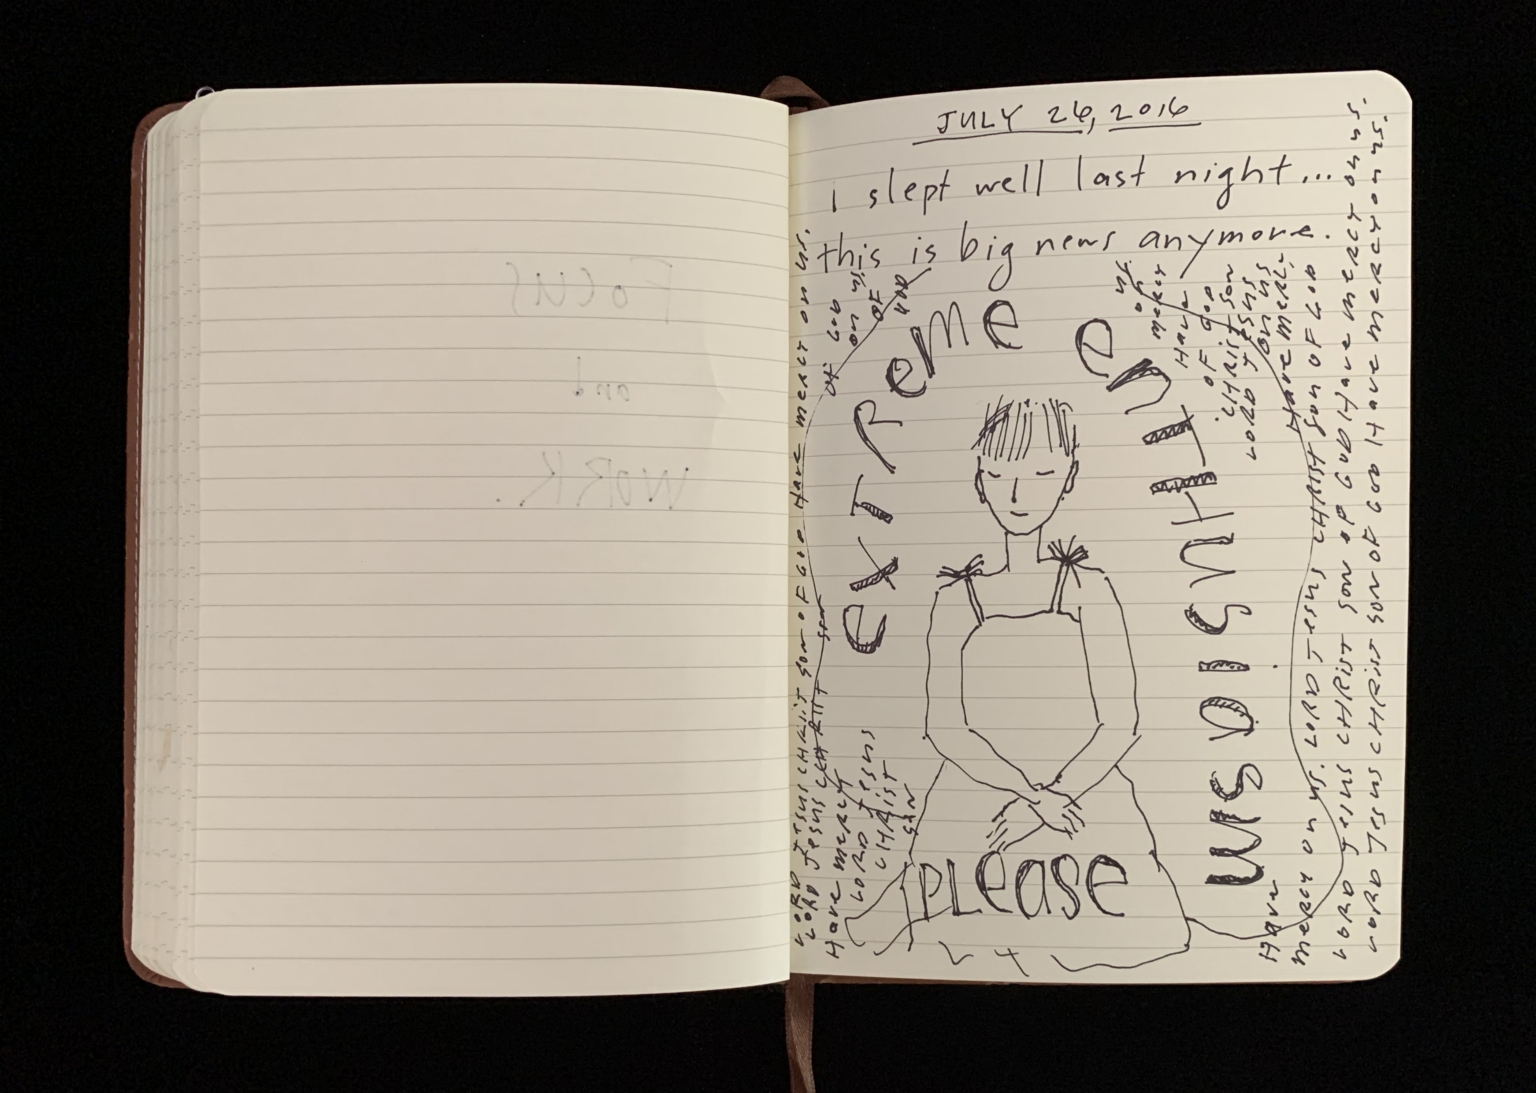 Focus
and
WORK.
JULY 26, 2016
I slept well last night...
this is big news anymore.
exTReMe
enTHUSIaSm
PLease
LORD JESUS CHRIST SON OF GOD Have mercy on us.
LORD Jesus CHRIST SON
OF GOD
Have mercy
on us.
LORD Jesus
CHRIST
SON
OF
GOD
Have
mercy
on
us
LORD Jesus
CHRIST SON
OF GOD
Have merCy
on us
Have
mercy on us. LORD Jesus CHRIST son OF GOD
LORD Jesus CHRIST SON OF GOD Have mercy on us.
LORD Jesus CHRIST SON OF GOD Have mercy on us.